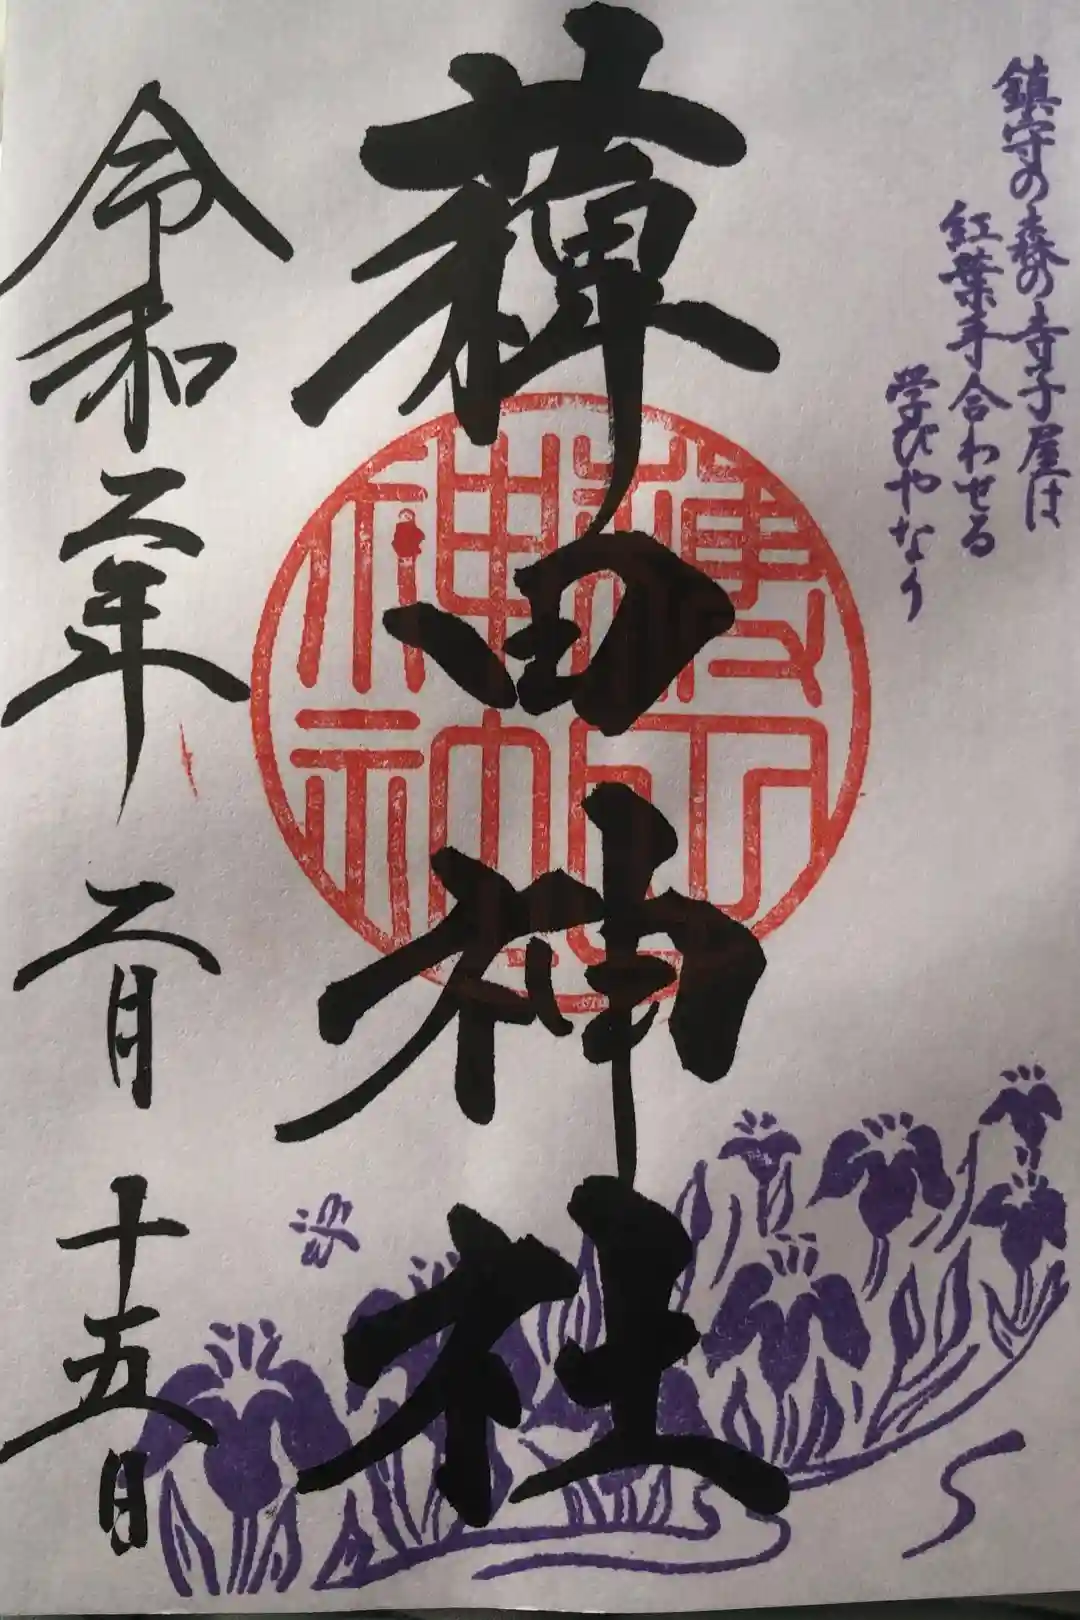 鎮守の森の寺子屋は
紅葉手合わせる
学びやなり
薭田神社
令和二年二月十五日